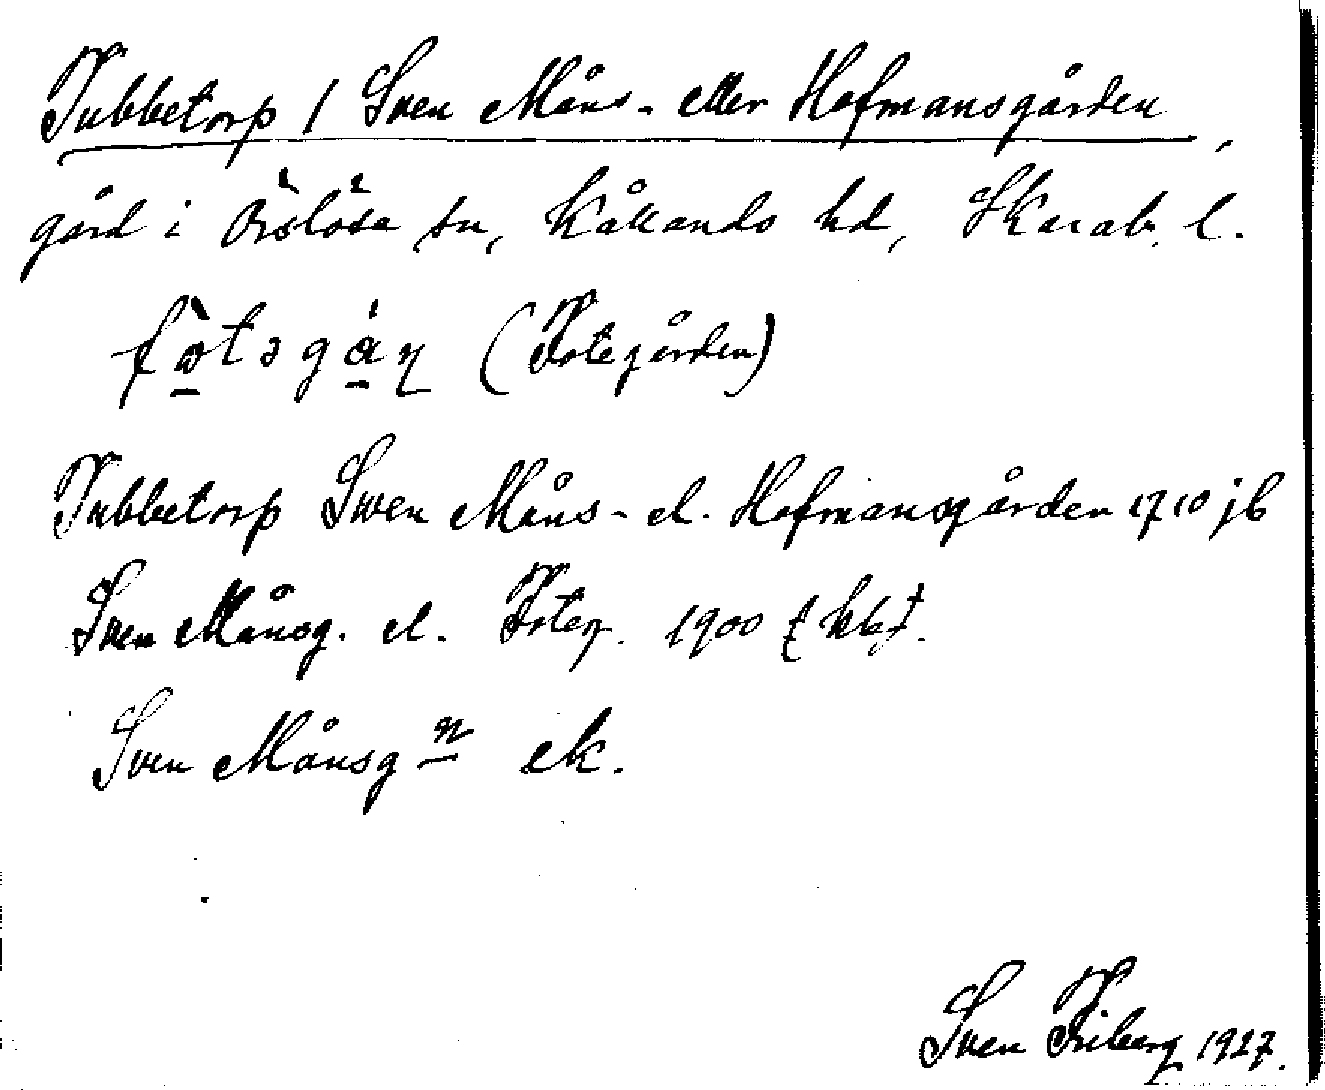 Tubbetorp / Sven Måns- eller Hofmansgården,
gård i Örslösa sn, Kållands hd, Skarab. l.
(Fotegården)
Tubbetorp Swen Måns- el. Hofmansgården 1710 jb
Sven Månsg. el. Foteg. 1900
Sven Månsg n ek.
Sven Friberg 1927.